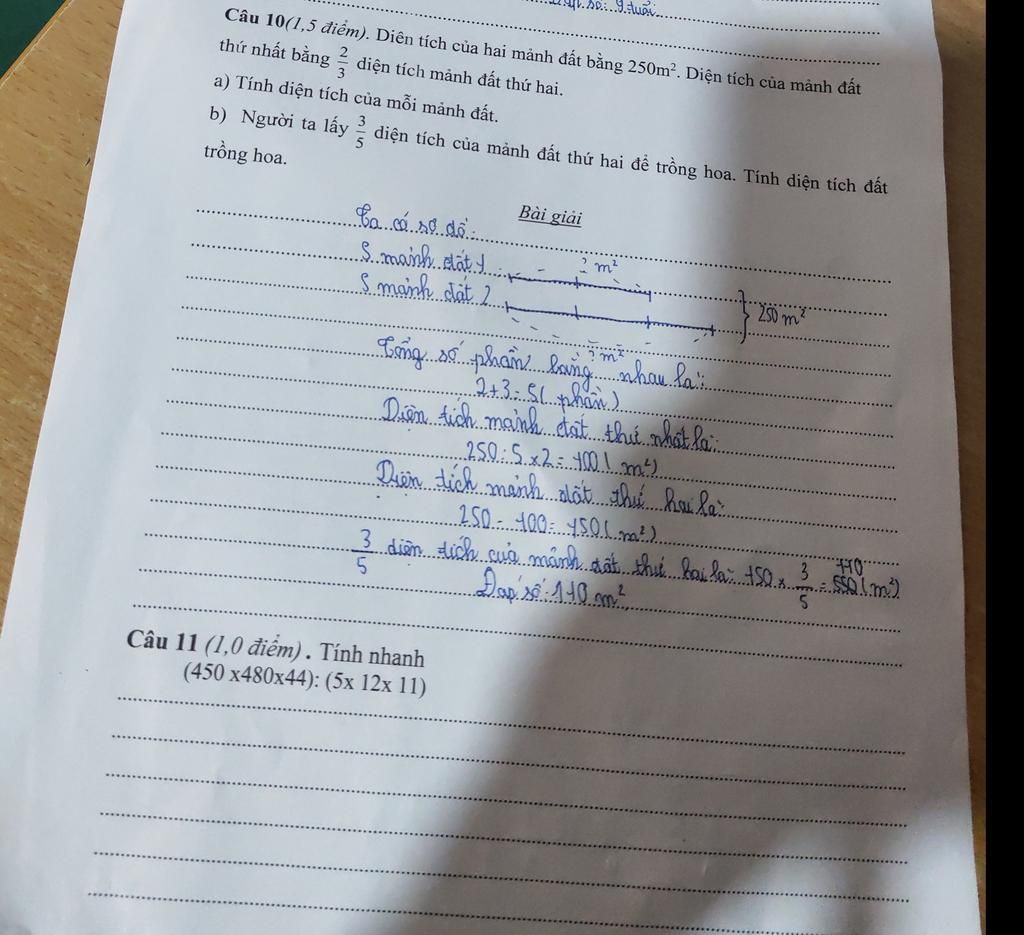 Đáp số: 9 tuổi
Câu 10(1,5 điểm). Diên tích của hai mảnh đất bằng 250m². Diện tích của mảnh đất
thứ nhất bằng 2/3 diện tích mảnh đất thứ hai.
a) Tính diện tích của mỗi mảnh đất.
b) Người ta lấy 3/5 diện tích của mảnh đất thứ hai để trồng hoa. Tính diện tích đất
trồng hoa.
Bài giải
Ta có sơ đồ:
S mảnh đất 1 : ? m²
S mảnh đất 2 250 m²
? m²
Tổng số phần bằng nhau là:
2+3=5( phần)
Diện tích mảnh đất thứ nhất là:
250:5 x2=100( m²)
Diện tích mảnh đất thứ hai là:
250-100=150( m²)
110
3/5 diện tích của mảnh đất thứ hai là: 150 x 3/5 = 550 (m²)
Đáp số: 110 m²
Câu 11 (1,0 điểm) . Tính nhanh
(450 x480x44): (5x 12x 11)